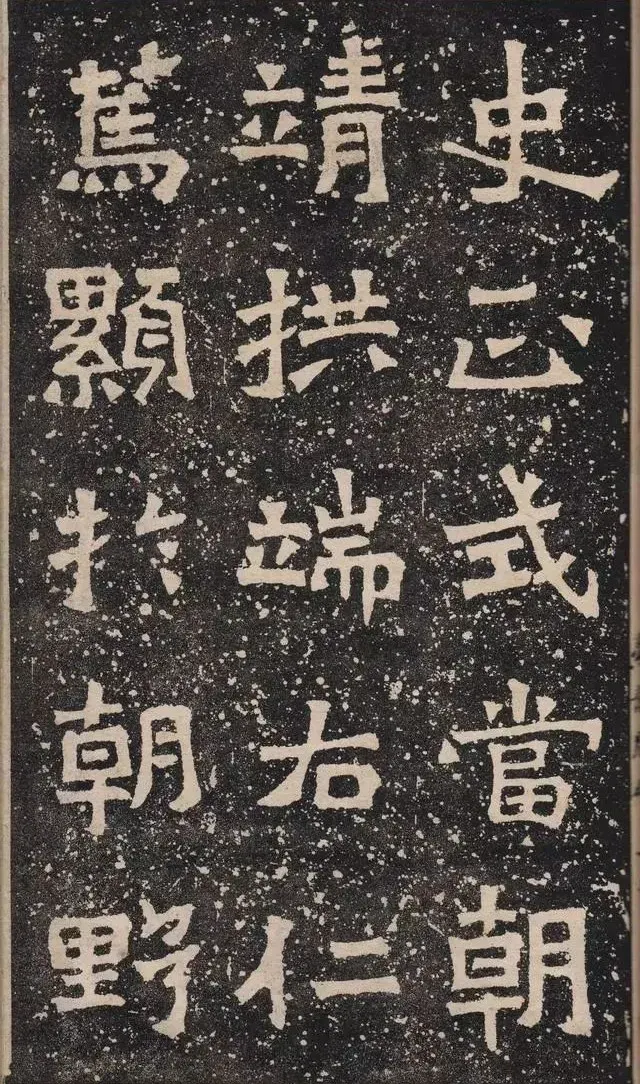 史正式當朝
靖拱端右仁
篤顯扵朝野